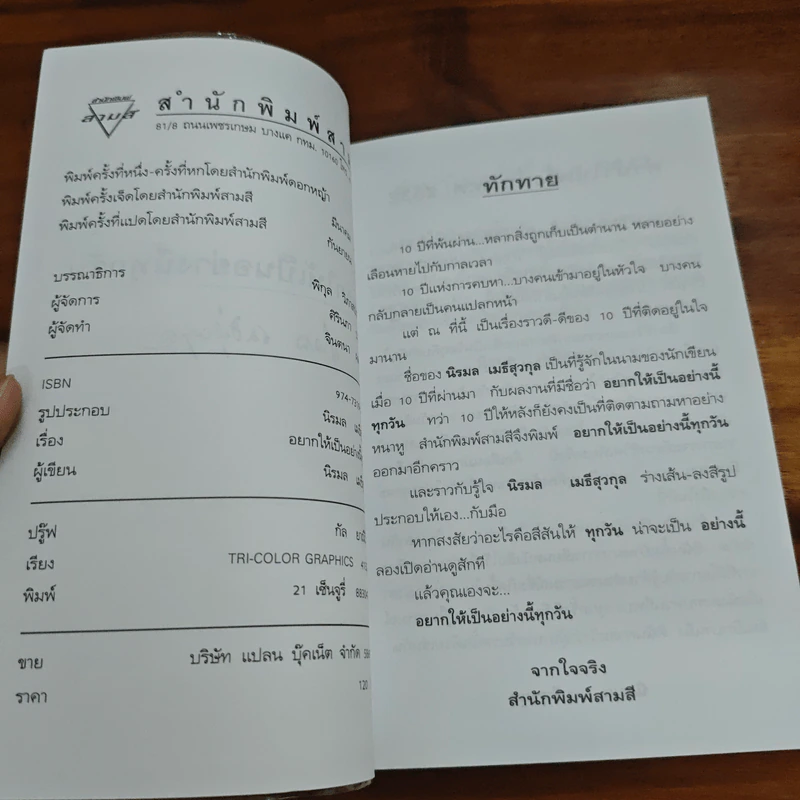 สำนักพิมพ์
สามสี
สำนักพิมพ์
81/8 ถนนเพชรเกษม บางแค กทม. 10160
พิมพ์ครั้งที่หนึ่ง-ครั้งที่หกโดยสำนักพิมพ์ดอกหญ้า
พิมพ์ครั้งเจ็ดโดยสำนักพิมพ์สามสี
พิมพ์ครั้งที่แปดโดยสำนักพิมพ์สามสี
บรรณาธิการ พิกุล
ผู้จัดการ ศิรินภา
ผู้จัดทำ จินตนา
ISBN 974-73
รูปประกอบ นิรมล
เรื่อง อยากให้เป็นอย่างนี้
ผู้เขียน นิรมล
ปรู๊ฟ กัล
เรียง TRI-COLOR GRAPHICS
พิมพ์ 21 เซ็นจูรี่
ขาย บริษัท แปลน บุ๊คเน็ต จำกัด
ราคา 120
ทักทาย
10 ปีที่พ้นผ่าน...หลากสิ่งถูกเก็บเป็นตำนาน หลายอย่าง
เลือนหายไปกับกาลเวลา
10 ปีแห่งการคบหา...บางคนเข้ามาอยู่ในหัวใจ บางคน
กลับกลายเป็นคนแปลกหน้า
แต่ ณ ที่นี้ เป็นเรื่องราวดี-ดีของ 10 ปีที่ติดอยู่ในใจ
มานาน
ชื่อของ นิรมล เมธีสุวกุล เป็นที่รู้จักในนามของนักเขียน
เมื่อ 10 ปีที่ผ่านมา กับผลงานที่มีชื่อว่า อยากให้เป็นอย่างนี้
ทุกวัน ทว่า 10 ปีให้หลังก็ยังคงเป็นที่ติดตามถามหาอย่าง
หนาหู สำนักพิมพ์สามสีจึงพิมพ์ อยากให้เป็นอย่างนี้ทุกวัน
ออกมาอีกคราว
และราวกับรู้ใจ นิรมล เมธีสุวกุล ร่างเส้น-ลงสีรูป
ประกอบให้เอง...กับมือ
หากสงสัยว่าอะไรคือสีสันให้ ทุกวัน น่าจะเป็น อย่างนี้
ลองเปิดอ่านดูสักที
แล้วคุณเองจะ...
อยากให้เป็นอย่างนี้ทุกวัน
จากใจจริง
สำนักพิมพ์สามสี